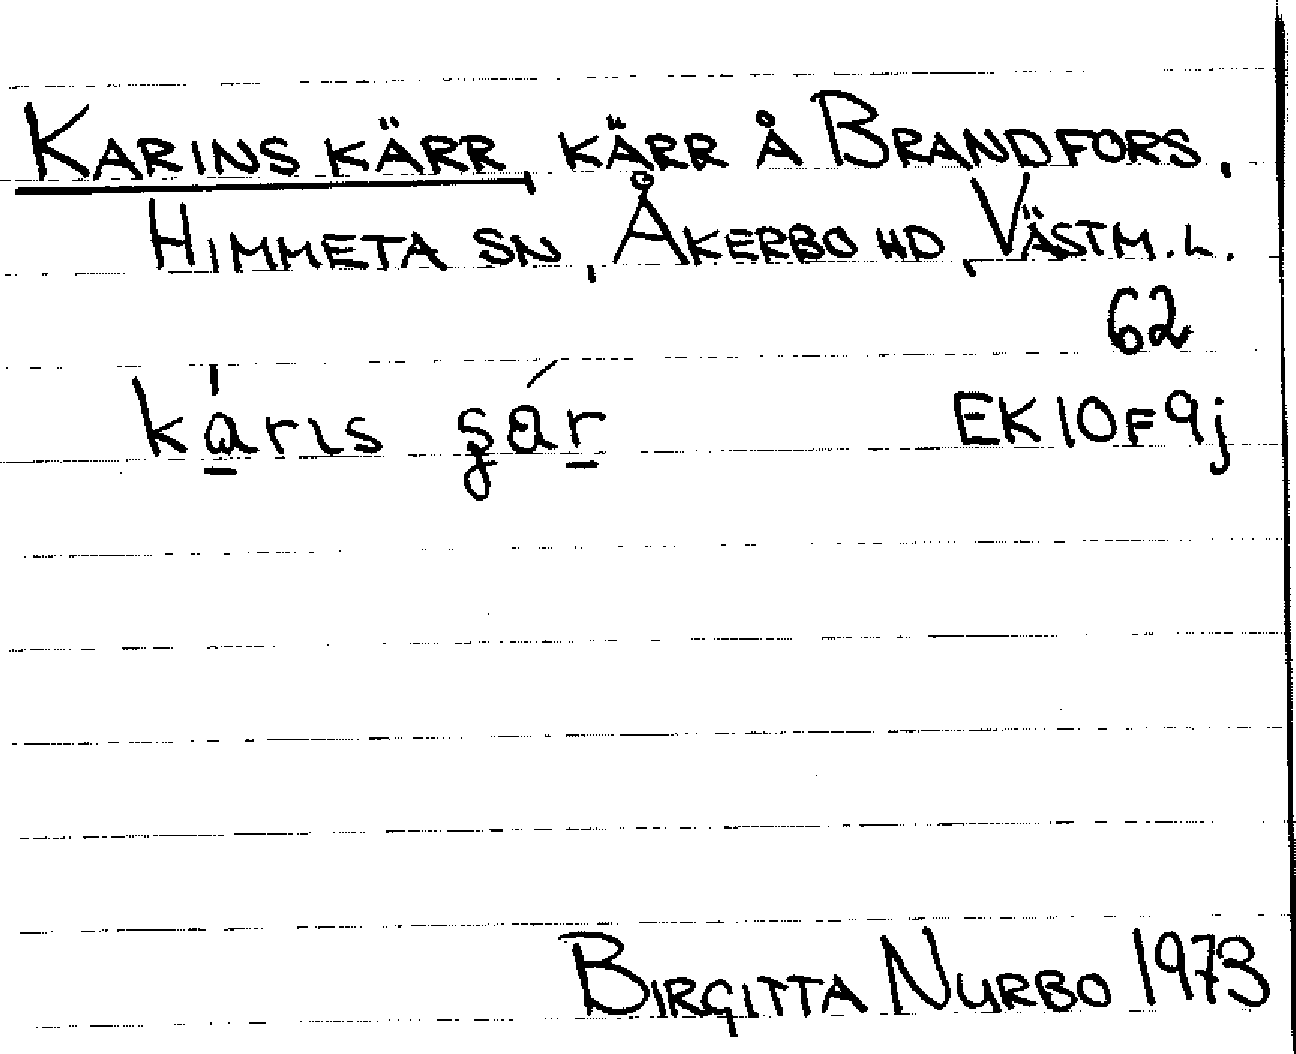 KARINS KÄRR, KÄRR Å BRANDFORS,
HIMMETA SN, ÅKERBO HD, VÄSTM. L.
62
EK 10F9j
BIRGITTA NURBO 1973